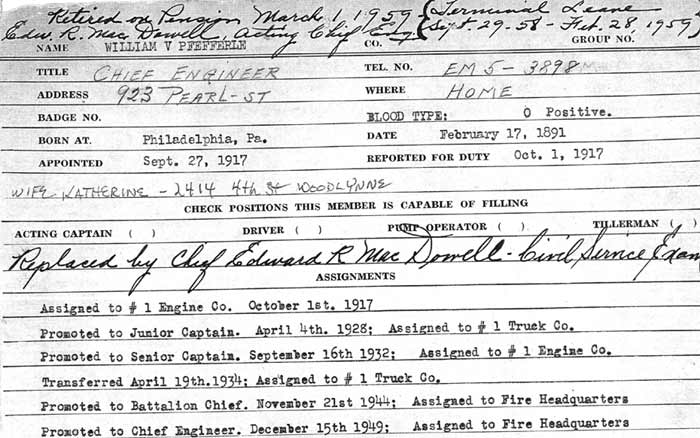 Retired on Pension March 1, 1959 (Terminal Leave
Edw. R. Mac Dowell, Acting Chief Eng. Sept. 29-58 - Feb. 28, 1959)
NAME WILLIAM V PFEFFERLE CO. GROUP NO.
TITLE CHIEF ENGINEER TEL. NO. EM 5-3898
ADDRESS 923 PEARL-ST WHERE HOME
BADGE NO. BLOOD TYPE: O Positive.
BORN AT. Philadelphia, Pa. DATE February 17, 1891
APPOINTED Sept. 27, 1917 REPORTED FOR DUTY Oct. 1, 1917
WIFE KATHERINE - 2414 4th St WOODLYNNE
CHECK POSITIONS THIS MEMBER IS CAPABLE OF FILLING
ACTING CAPTAIN ( ) DRIVER ( ) PUMP OPERATOR ( ) TILLERMAN ( )
Replaced by Chief Edward R Mac Dowell - Civil Service Exam
ASSIGNMENTS
Assigned to # 1 Engine Co. October 1st. 1917
Promoted to Junior Captain. April 4th. 1928; Assigned to # 1 Truck Co.
Promoted to Senior Captain. September 16th 1932; Assigned to # 1 Engine Co.
Transferred April 19th.1934; Assigned to # 1 Truck Co.
Promoted to Battalion Chief. November 21st 1944; Assigned to Fire Headquarters
Promoted to Chief Engineer. December 15th 1949; Assigned to Fire Headquarters